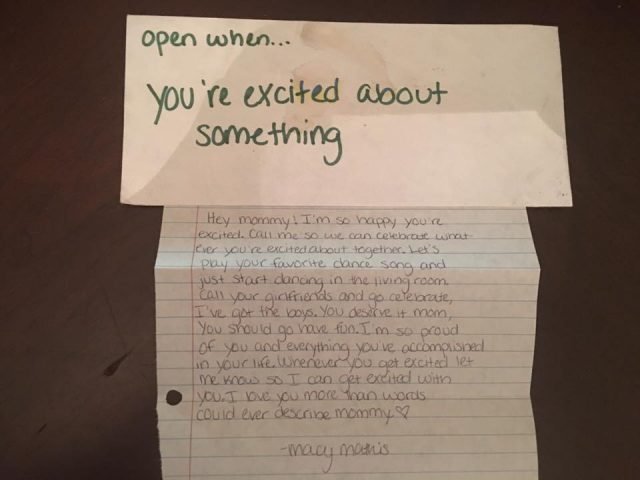 open when...
you're excited about
something
Hey mommy! I'm so happy you're
excited. Call me so we can celebrate what
ever you're excited about together. Let's
play your favorite dance song and
just start dancing in the living room.
Call your girlfriends and go celebrate,
I've got the boys. You deserve it mom,
You should go have fun. I'm so proud
of you and everything you've accomplished
in your life. Whenever you get excited let
me know so I can get excited with
you. I love you more than words
could ever describe mommy♡
-macy mathis